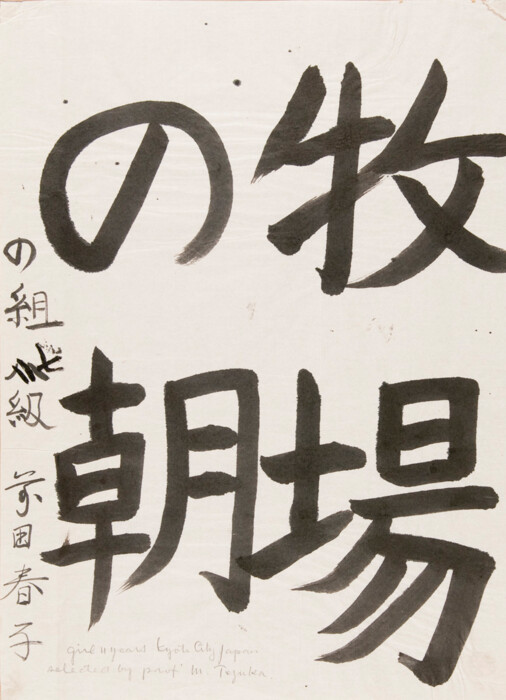 牧場
の朝
の組 級 田春子
girl 11 years Kyoto City Japan
selected by prof M. Tezuka